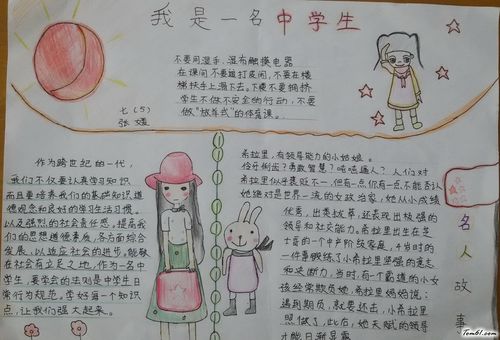 我是一名中学生
不要用湿手、湿布触摸电器
在课间不要追打逗闹,不要在楼
梯扶手上溜下去。下楼不要拥挤
学生不做不安全的行动,不要
做"放羊式"的体育课。
七(5)
张
作为跨世纪的一代,
我们不仅要认真学习知识
而且要培养我们的基础知识道
德观念和良好的学习生活习惯。
以及强烈的社会责任感,提高我
们的思想道德素质,各方面综合
发展,以适应社会的进步,能够
在社会有立足之地,作为一名中
学生,要学会的法则是中学生日
常行为规范,学好每一个知识
点,让我们强大起来。
希拉里,有领导能力的小姑娘。
伶牙俐齿?勇敢智慧?咄咄逼人?人们对
希拉里似乎褒贬不一,但有一点你有一点不能否认
她绝对是世界一流的女政治家,她从小成绩
优秀,出类拔萃,还表现出极强的
领导和社交能力。希拉里出生在芝
士哥的一个中产阶级家庭,4岁时的
一件事锻炼了小希拉里坚强的意志
和决断力,当时,有一个霸道的小女
孩经常欺负她,希拉里妈妈说:
遇到期负,就要还击,小希拉里
照做了,此后,她天赋的领导
才能日渐显露
名人故事
Tom61.com